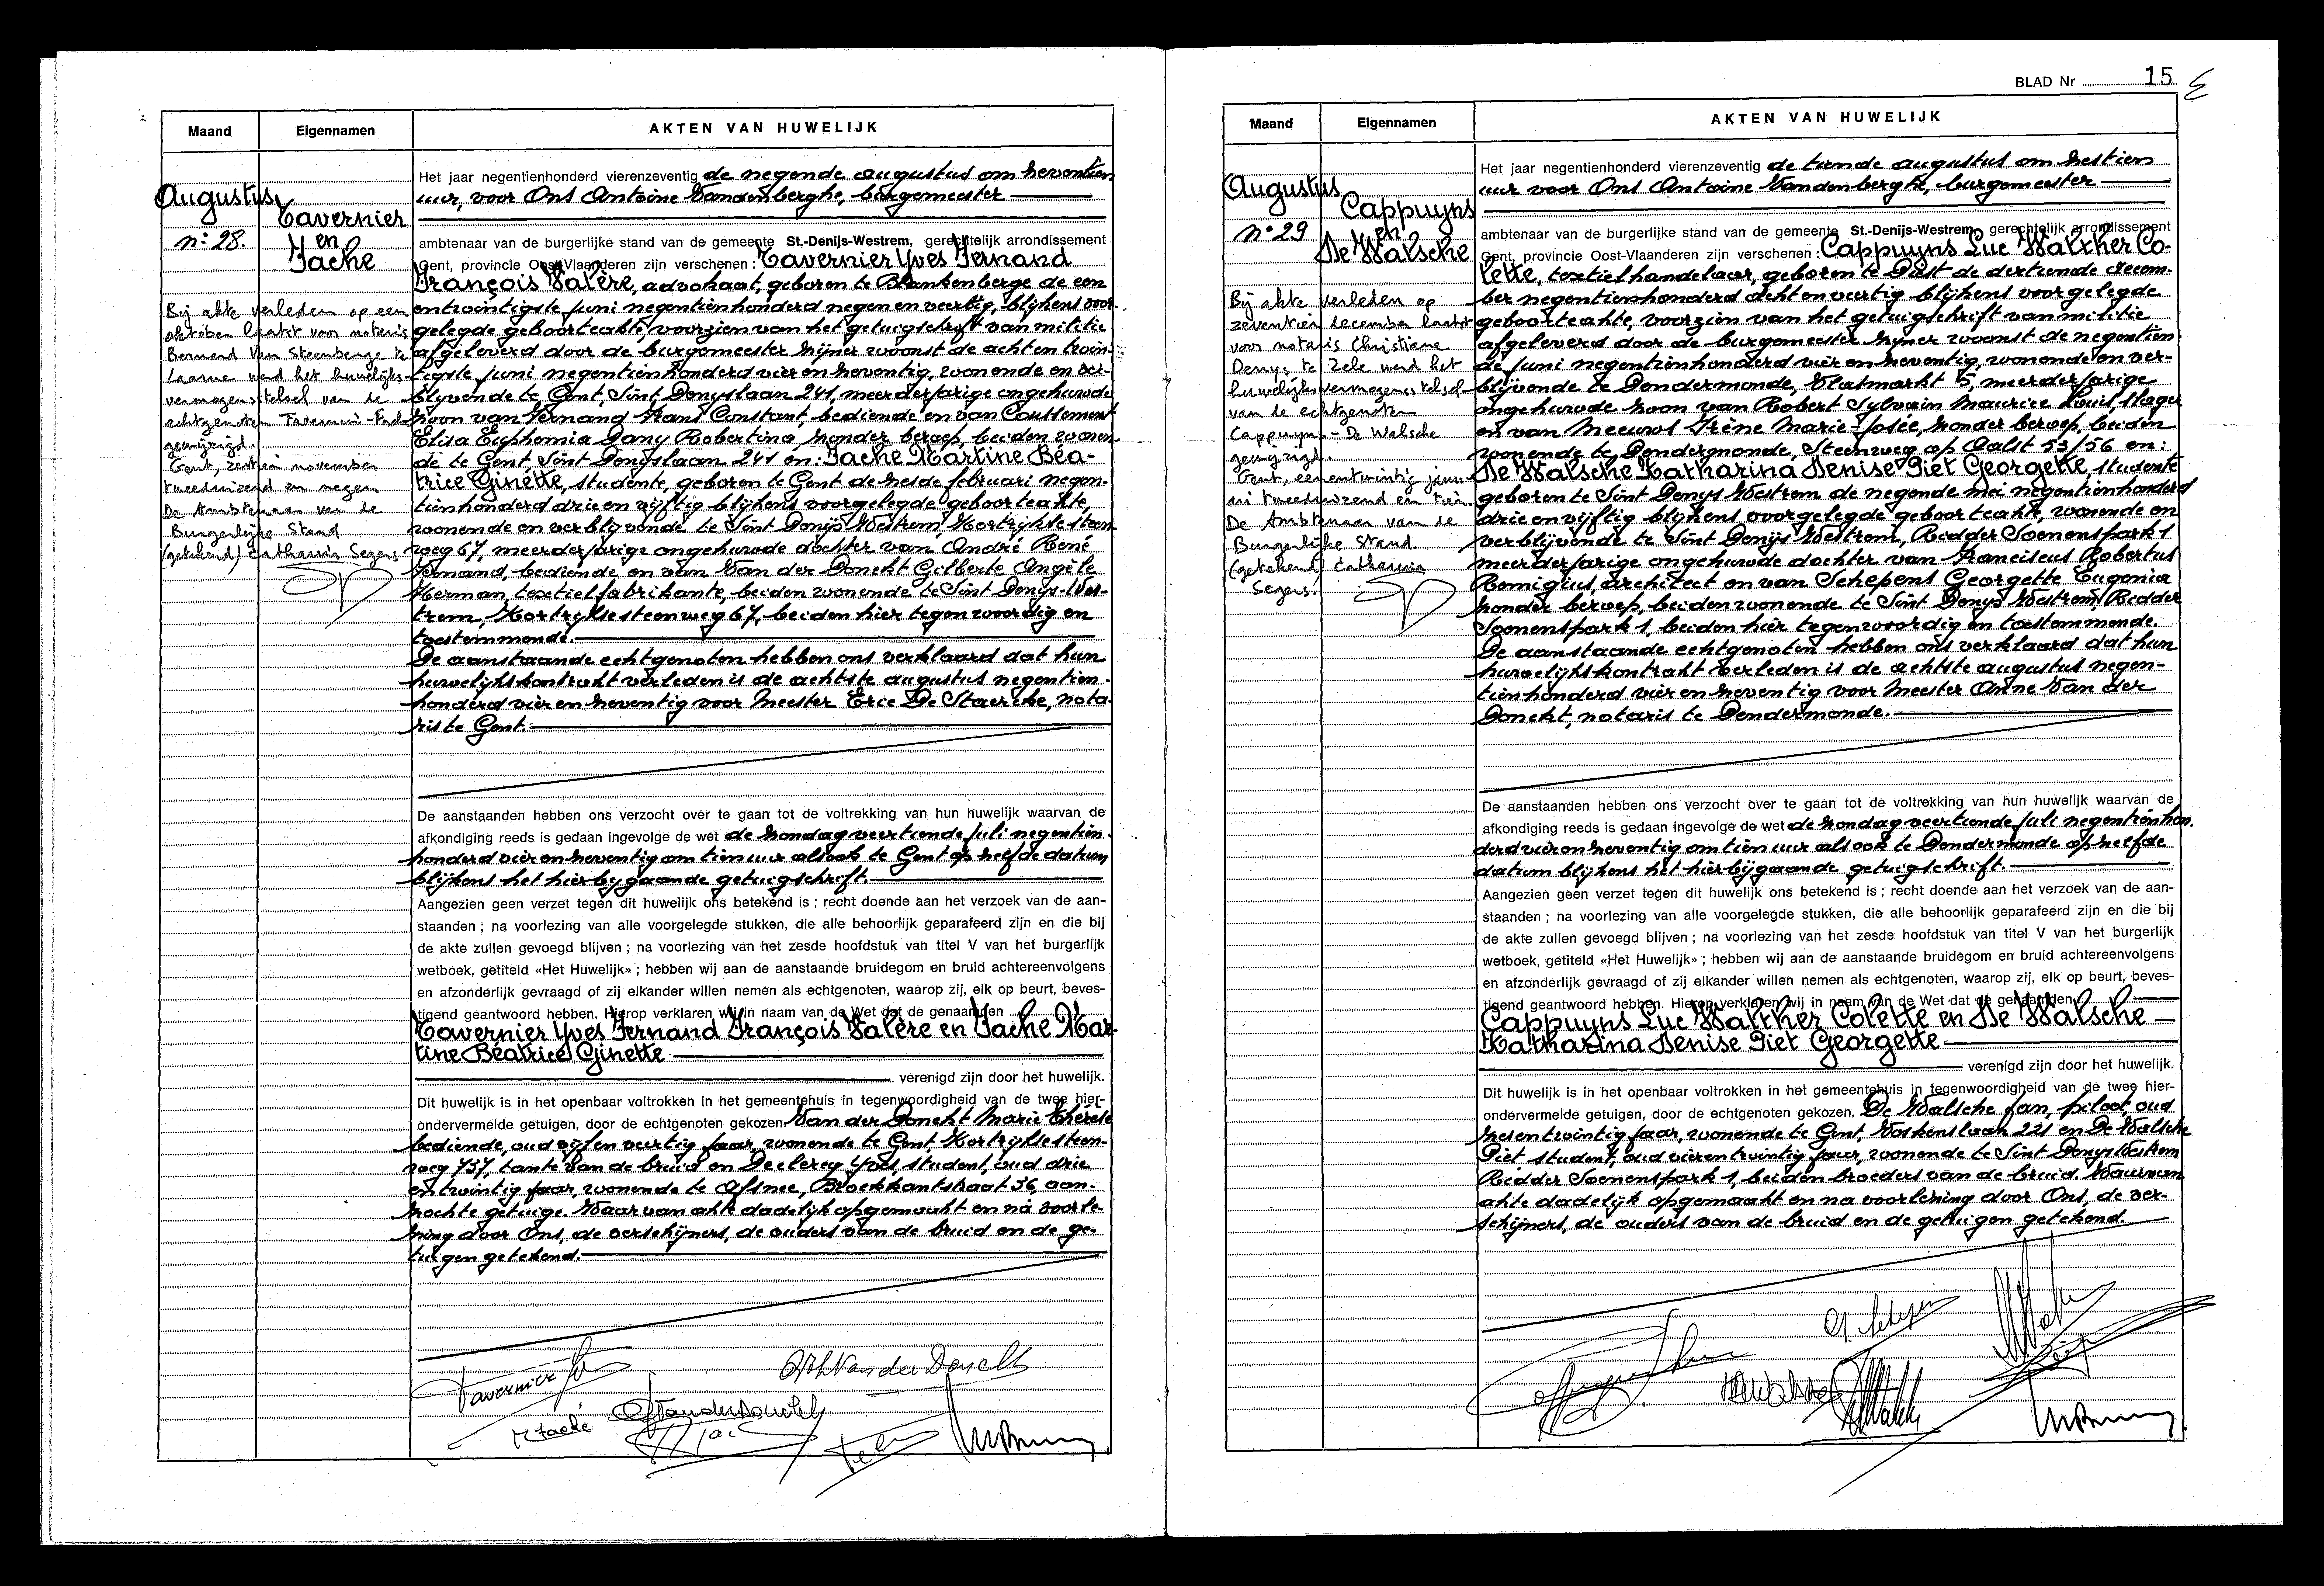 Maand
Eigennamen
AKTEN VAN HUWELIJK
Augustus
n: 28.
Tavernier
en
Fache
Bij akte verleden op een
oktober laatst voor notaris
Bernard Van Steenberge te
Laarne werd het huwelijks-
vermogensstelsel van de
echtgenoten Tavernier-Fache
gewijzigd.
Gent, zestien november
tweeduizend en negen
De Ambtenaar van de
Burgerlijke Stand
(getekend) Catharina Segers
Het jaar negentienhonderd vierenzeventig de negende augustus om zeventien
uur, voor Ons Antoine Vandenberghe, burgemeester
ambtenaar van de burgerlijke stand van de gemeente St.-Denijs-Westrem, gerechtelijk arrondissement
Gent, provincie Oost-Vlaanderen zijn verschenen : Tavernier Yves Fernand
François Valère, advokaat, geboren te Blankenberge de een
entwintigste juni negentienhonderd negen en veertig, blijkens voor-
gelegde geboorteakte, voorzien van het getuigschrift van militie
afgeleverd door de burgemeester zijner woonst de acht en twin-
tigste juni negentienhonderd vier en zeventig, wonende en ver-
blijvende te Gent, Sint Denyslaan 241, meerderjarige ongehuwde
zoon van Fernand Frans Constant, bediende en van Coussement
Elisa Euphemia Dany Robertina zonder beroep, beiden wonen-
de te Gent, Sint Denyslaan 241 en: Fache Martine Béa-
trice Ginette, studente, geboren te Gent de zesde februari negen-
tienhonderd drie en vijftig blijkens voorgelegde geboorteakte,
wonende en verblijvende te Sint Denijs Westrem, Kortrijksesteen-
weg 67, meerderjarige ongehuwde dochter van André René
Fernand, bediende en van Van der Donckt Gilberte Angèle
Herman, textielfabrikante, beiden wonende te Sint Denys-Wes-
trem, Kortrijksesteenweg 67, beiden hier tegenwoordig en
toestemmende.
De aanstaande echtgenoten hebben ons verklaard dat hun
huwelijkskontrakt verleden is de achtste augustus negentien-
honderd vier en zeventig voor Meester Eric De Staercke, nota-
ris te Gent.
De aanstaanden hebben ons verzocht over te gaan tot de voltrekking van hun huwelijk waarvan de
afkondiging reeds is gedaan ingevolge de wet de zondag veertiende juli negentien-
honderd vier en zeventig om tien uur alsook te Gent op zelfde datum
blijkens het hierbijgaande getuigschrift.
Aangezien geen verzet tegen dit huwelijk ons betekend is ; recht doende aan het verzoek van de aan-
staanden ; na voorlezing van alle voorgelegde stukken, die alle behoorlijk geparafeerd zijn en die bij
de akte zullen gevoegd blijven ; na voorlezing van het zesde hoofdstuk van titel V van het burgerlijk
wetboek, getiteld «Het Huwelijk» ; hebben wij aan de aanstaande bruidegom en bruid achtereenvolgens
en afzonderlijk gevraagd of zij elkander willen nemen als echtgenoten, waarop zij, elk op beurt, beves-
tigend geantwoord hebben. Hierop verklaren wij in naam van de Wet dat de genaamden
Tavernier Yves Fernand François Valère en Fache Mar-
tine Béatrice Ginette
verenigd zijn door het huwelijk.
Dit huwelijk is in het openbaar voltrokken in het gemeentehuis in tegenwoordigheid van de twee hier-
ondervermelde getuigen, door de echtgenoten gekozen. Van der Donckt Marie Thérèse
bediende, oud vijf en veertig jaar, wonende te Gent, Kortrijksesteen-
weg 737, tante van de bruid en Declercq Yves, student, oud drie
en twintig jaar, wonende te Afsnee, Broekkantstraat 36, aan-
zochte getuige. Waarvan akte dadelijk opgemaakt en na voorle-
zing door Ons, de verschijners, de ouders van de bruid en de ge-
tuigen getekend.
Tavernier
MTh Van der Donckt
M Fache
G Vanderdonckt
BLAD Nr 15
Maand
Eigennamen
AKTEN VAN HUWELIJK
Augustus
n: 29
Cappuyns
en
De Walsche
Bij akte verleden op
zeventien december laatst
voor notaris Christiane
Denys te Zele werd het
huwelijksvermogensstelsel
van de echtgenoten
Cappuyns - De Walsche
gewijzigd.
Gent, eenentwintig janu-
ari tweeduizend en tien
De Ambtenaar van de
Burgerlijke Stand.
(getekend) Catharina
Segers.
Het jaar negentienhonderd vierenzeventig de tiende augustus om zestien
uur voor Ons Antoine Vandenberghe, burgemeester
ambtenaar van de burgerlijke stand van de gemeente St.-Denijs-Westrem, gerechtelijk arrondissement
Gent, provincie Oost-Vlaanderen zijn verschenen : Cappuyns Luc Walther Co-
lette, textielhandelaar, geboren te Diest de dertiende decem-
ber negentienhonderd acht en veertig blijkens voorgelegde
geboorteakte, voorzien van het getuigschrift van militie
afgeleverd door de burgemeester zijner woonst de negentien-
de juni negentienhonderd vier en zeventig, wonende en ver-
blijvende te Dendermonde, Vlasmarkt 5, meerderjarige
ongehuwde zoon van Robert Sylvain Maurice Louis, slager
en van Meeuws Irène Marie-Josée, zonder beroep, beiden
wonende te Dendermonde, Steenweg op Aalst 53/56 en:
De Walsche Katharina Denise Piet Georgette, studente
geboren te Sint Denys Westrem de negende mei negentienhonderd
drie en vijftig blijkens voorgelegde geboorteakte, wonende en
verblijvende te Sint Denijs Westrem, Ridder Soenenspark 1
meerderjarige ongehuwde dochter van Franciscus Robertus
Remigius, architect en van Schepens Georgette Eugenia
zonder beroep, beiden wonende te Sint Denys Westrem, Ridder
Soenenspark 1, beiden hier tegenwoordig en toestemmende.
De aanstaande echtgenoten hebben ons verklaard dat hun
huwelijkskontrakt verleden is de achtste augustus negen-
tienhonderd vier en zeventig voor Meester Anne Van der
Donckt, notaris te Dendermonde.
De aanstaanden hebben ons verzocht over te gaan tot de voltrekking van hun huwelijk waarvan de
afkondiging reeds is gedaan ingevolge de wet de zondag veertiende juli negentienhon-
derd vier en zeventig om tien uur alsook te Dendermonde op zelfde
datum blijkens het hierbijgaande getuigschrift.
Aangezien geen verzet tegen dit huwelijk ons betekend is ; recht doende aan het verzoek van de aan-
staanden ; na voorlezing van alle voorgelegde stukken, die alle behoorlijk geparafeerd zijn en die bij
de akte zullen gevoegd blijven ; na voorlezing van het zesde hoofdstuk van titel V van het burgerlijk
wetboek, getiteld «Het Huwelijk» ; hebben wij aan de aanstaande bruidegom en bruid achtereenvolgens
en afzonderlijk gevraagd of zij elkander willen nemen als echtgenoten, waarop zij, elk op beurt, beves-
tigend geantwoord hebben. Hierop verklaren wij in naam van de Wet dat de genaamden
Cappuyns Luc Walther Colette en De Walsche
Katharina Denise Piet Georgette
verenigd zijn door het huwelijk.
Dit huwelijk is in het openbaar voltrokken in het gemeentehuis in tegenwoordigheid van de twee hier-
ondervermelde getuigen, door de echtgenoten gekozen. De Walsche Jan, piloot, oud
zesentwintig jaar, wonende te Gent, Voskenslaan 221 en De Walsche
Piet student, oud vierentwintig jaar, wonende te Sint Denys Westrem
Ridder Soenenspark 1, beiden broeders van de bruid. Waarvan
akte dadelijk opgemaakt en na voorlezing door Ons, de ver-
schijners, de ouders van de bruid en de getuigen getekend.
G. Schepens